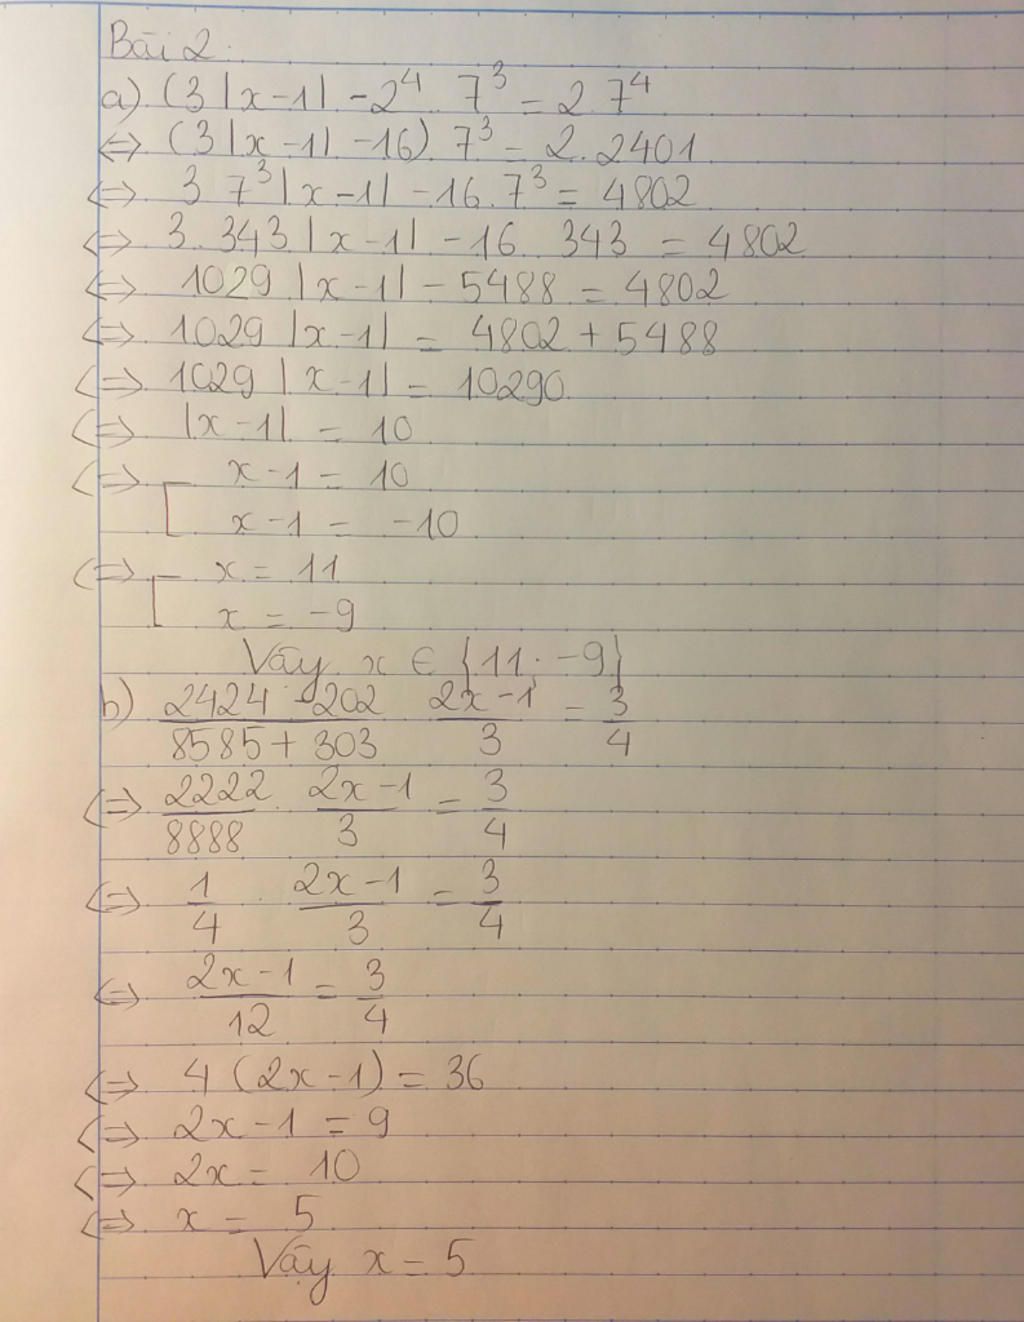 Bài 2.
a) (3|x-1| - 2⁴. 7³ = 2.7⁴
⇔ (3|x-1| - 16). 7³ = 2. 2401
⇔ 3. 7³|x-1| - 16. 7³ = 4802
⇔ 3. 343|x-1| - 16. 343 = 4802
⇔ 1029|x-1| - 5488 = 4802
⇔ 1029|x-1| = 4802 + 5488
⇔ 1029|x-1| = 10290
⇔ |x-1| = 10
⇔ [ x-1 = 10
x-1 = -10
⇔ [ x = 11
x = -9
Vậy x ∈ {11; -9}
b) (2424 - 202)/(8585 + 303) . (2x-1)/3 = 3/4
⇔ 2222/8888 . (2x-1)/3 = 3/4
⇔ 1/4 . (2x-1)/3 = 3/4
⇔ (2x-1)/12 = 3/4
⇔ 4 (2x-1) = 36
⇔ 2x-1 = 9
⇔ 2x = 10
⇔ x = 5
Vậy x = 5